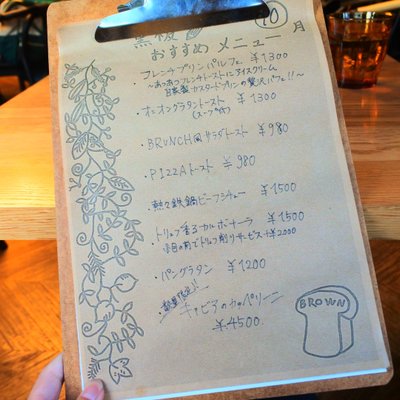 黒板
10月
おすすめ メニュー
フレンチプリンパルフェ ¥1300
～あつあつフレンチトーストにアイスクリーム
自家製カスタードプリンの贅沢パフェ!!～
・オニオングラタントースト ¥1300
(スープ付)
・BRUNCH風サラダトースト ¥980
・PIZZAトースト ¥980
・熱々鉄鍋ビーフシチュー ¥1500
・トリュフ香るカルボナーラ ¥1500
目の前でトリュフ削りサービス +¥2000
・パングラタン ¥1200
・数量限定!!
キャビアのカペリーニ
¥4500
BROWN